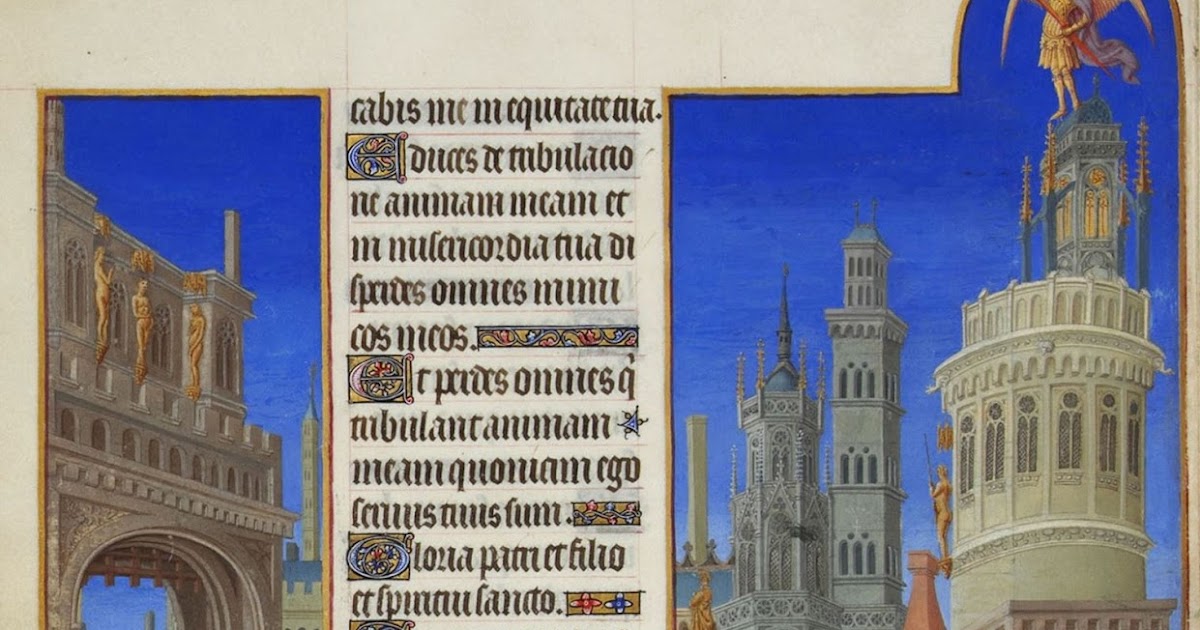 cabis me in equitate tua.
Educes de tribulacio
ne animam meam et
in misericordia tua di
sperdes omnes inimi
cos meos.
Et perdes omnes qͥ
tribulant animam
meam quoniam ego
seruus tuus sum.
Gloria patri et filio
et spiritui sancto.